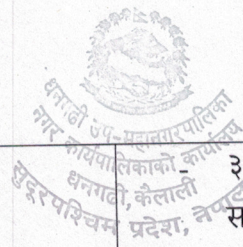 धनगढी उप-महानगरपालिका
नगर कार्यपालिकाको कार्यालय
धनगढी, कैलाली
सुदूरपश्चिम प्रदेश, नेपाल
-
३
स